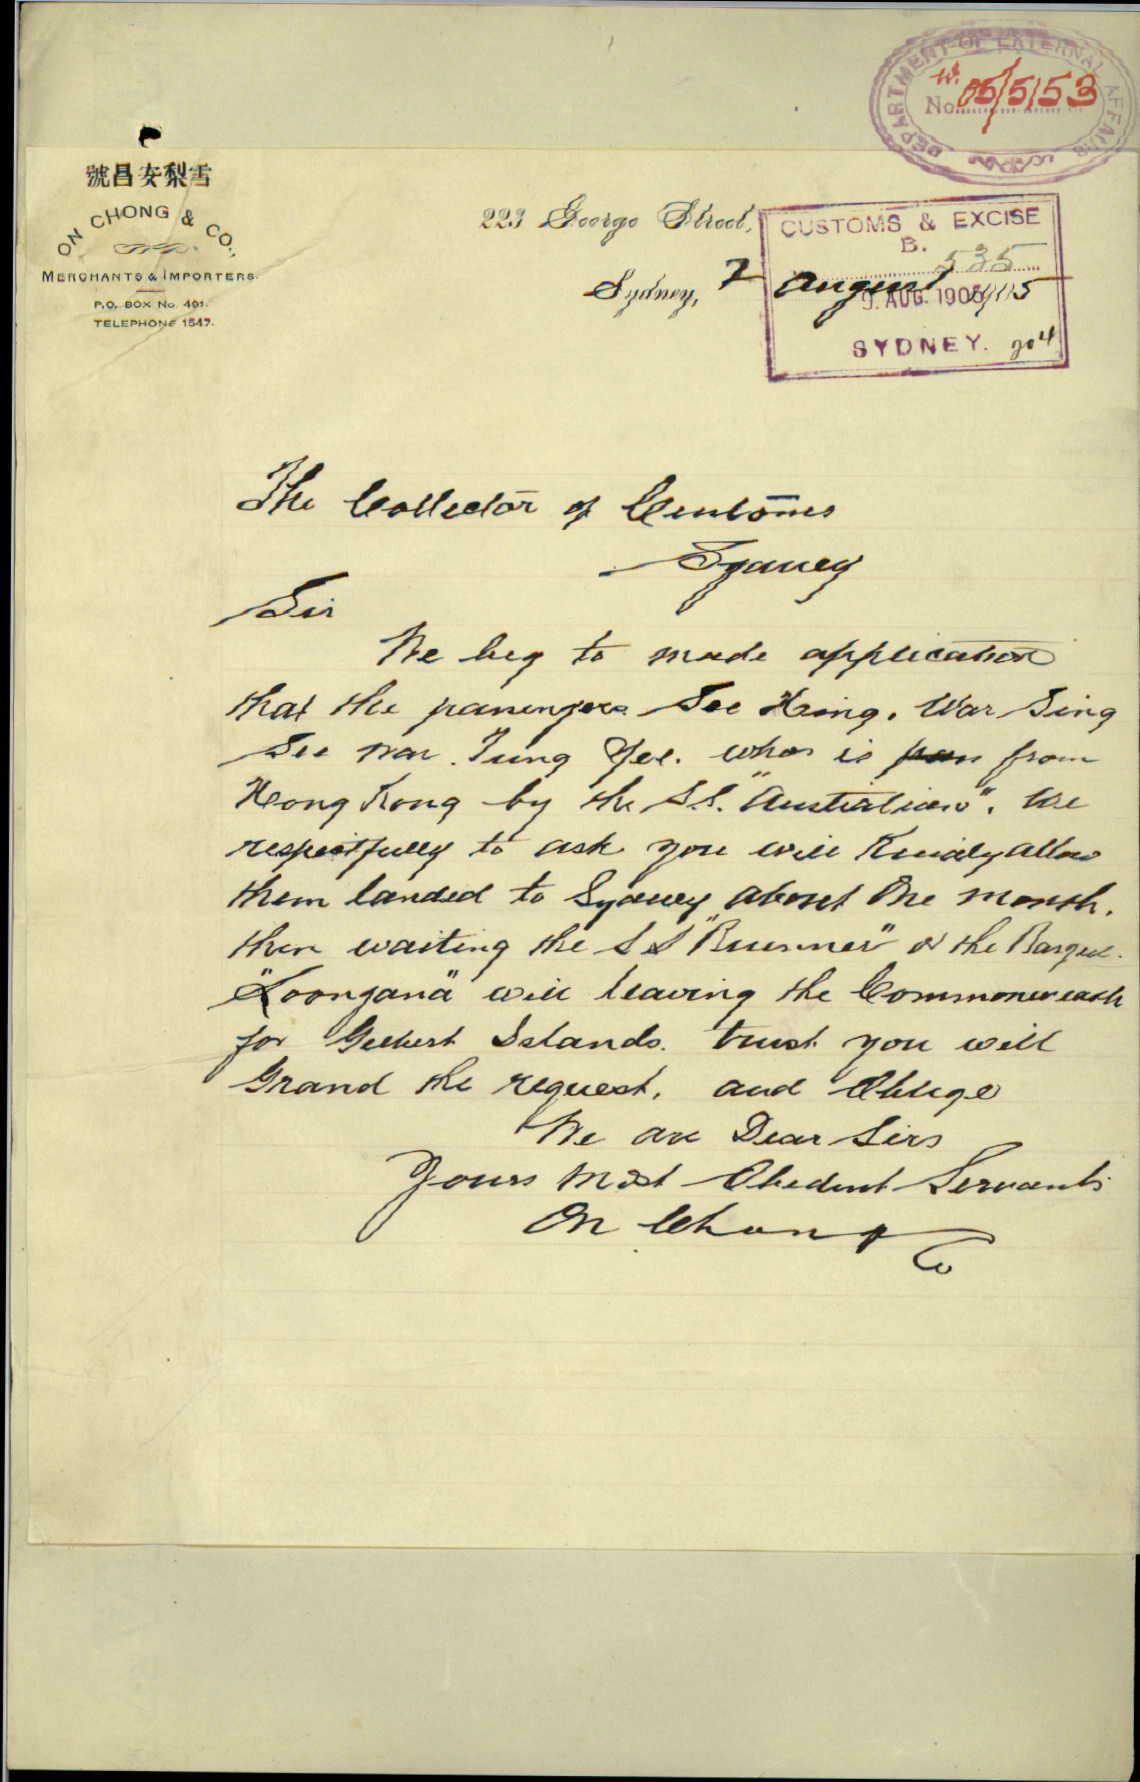 DEPARTMENT OF EXTERNAL AFFAIRS
No. 05/5153
號昌安梨雪
ON CHONG & CO.,
MERCHANTS & IMPORTERS.
P.O. BOX No. 401.
TELEPHONE 1547.
223 George Street,
Sydney, 7 August 1905
CUSTOMS & EXCISE
B. 535
9. AUG. 1905
SYDNEY.
The Collector of Customs
Sydney
Sir
We beg to made application
that the passengers See Hing. War Sing
See War. Tung Yee. whos is from
Hong Kong by the S.S. "Australian". We
respectfully to ask you will Kindly allow
them landed to Sydney about One month.
then waiting the S S "Brunner" or the Barque
"Loongana" will leaving the Commonweath
for Gilbert Islands. trust you will
Grand the request. and Oblige
We are Dear Sirs
Yours Most Obedient Servants
On Chong & Co